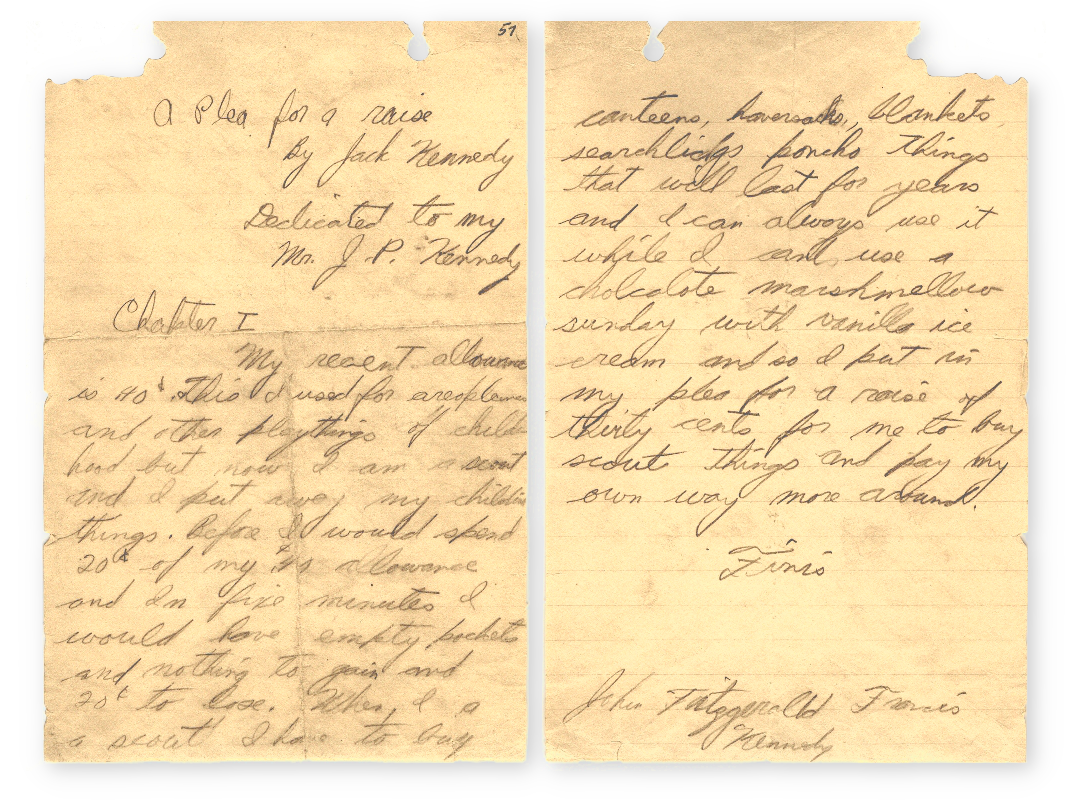 57
A Plea for a raise
By Jack Kennedy
Dedicated to my
Mr. J. P. Kennedy
Chapter I
My recent allowance
is 40¢. This I used for areoplanes
and other playthings of child
hood but now I am a scout
and I put away my childish
things. Before I would spend
20¢ of my ¢.40 allowance
and In five minutes I
would have empty pockets
and nothing to gain and
20¢ to lose. When I a
a scout I have to buy
canteens, haversacks, blankets
searchlidgs poncho things
that will last for years
and I can always use it
while I cant use a
cholcalote marshmellow
sunday with vanilla ice
cream and so I put in
my plea for a raise of
thirty cents for me to buy
scout things and pay my
own way more around.
Finis
John Fitzgerald Francis
Kennedy